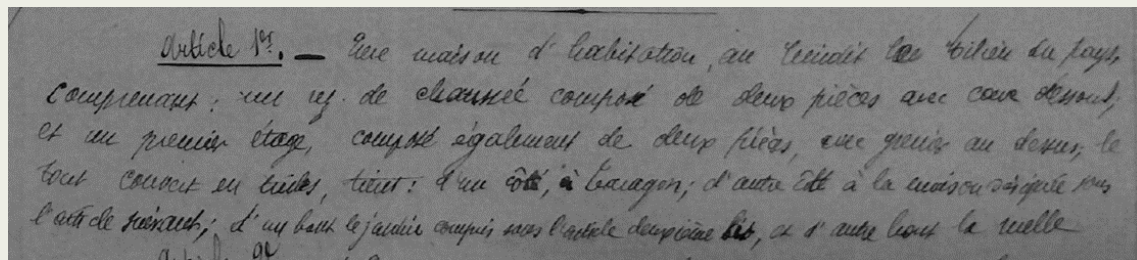 Article 1er. — Une maison d'habitation, au lieudit le milieu du pays,
comprenant : un rez de chaussée composé de deux pièces avec cave dessous,
et un premier étage, composé également de deux pièces, avec grenier au dessus, le
tout couvert en tuiles, tient : d'un côté, à Taragon; d'autre côté à la maison désignée sous
l'article suivant; d'un bout le jardin compris sous l'article deuxième bis, et d'autre bout la ruelle